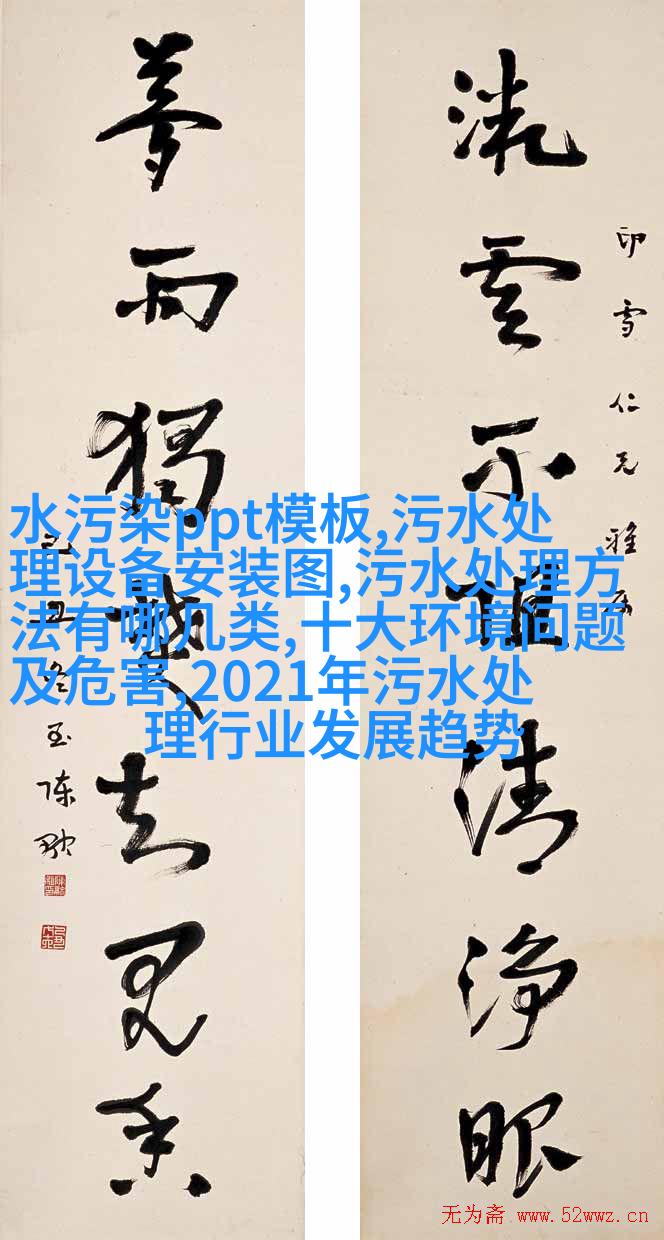 流雲不清淨眼
印雪仁兄雅
雨獨知見香
丑冬至陳融
水污染ppt模板,污水处
理设备安装图,污水处理方
法有哪几类,十大环境问题
及危害,2021年污水处
理行业发展趋势
无为斋 www.52wwz.cn